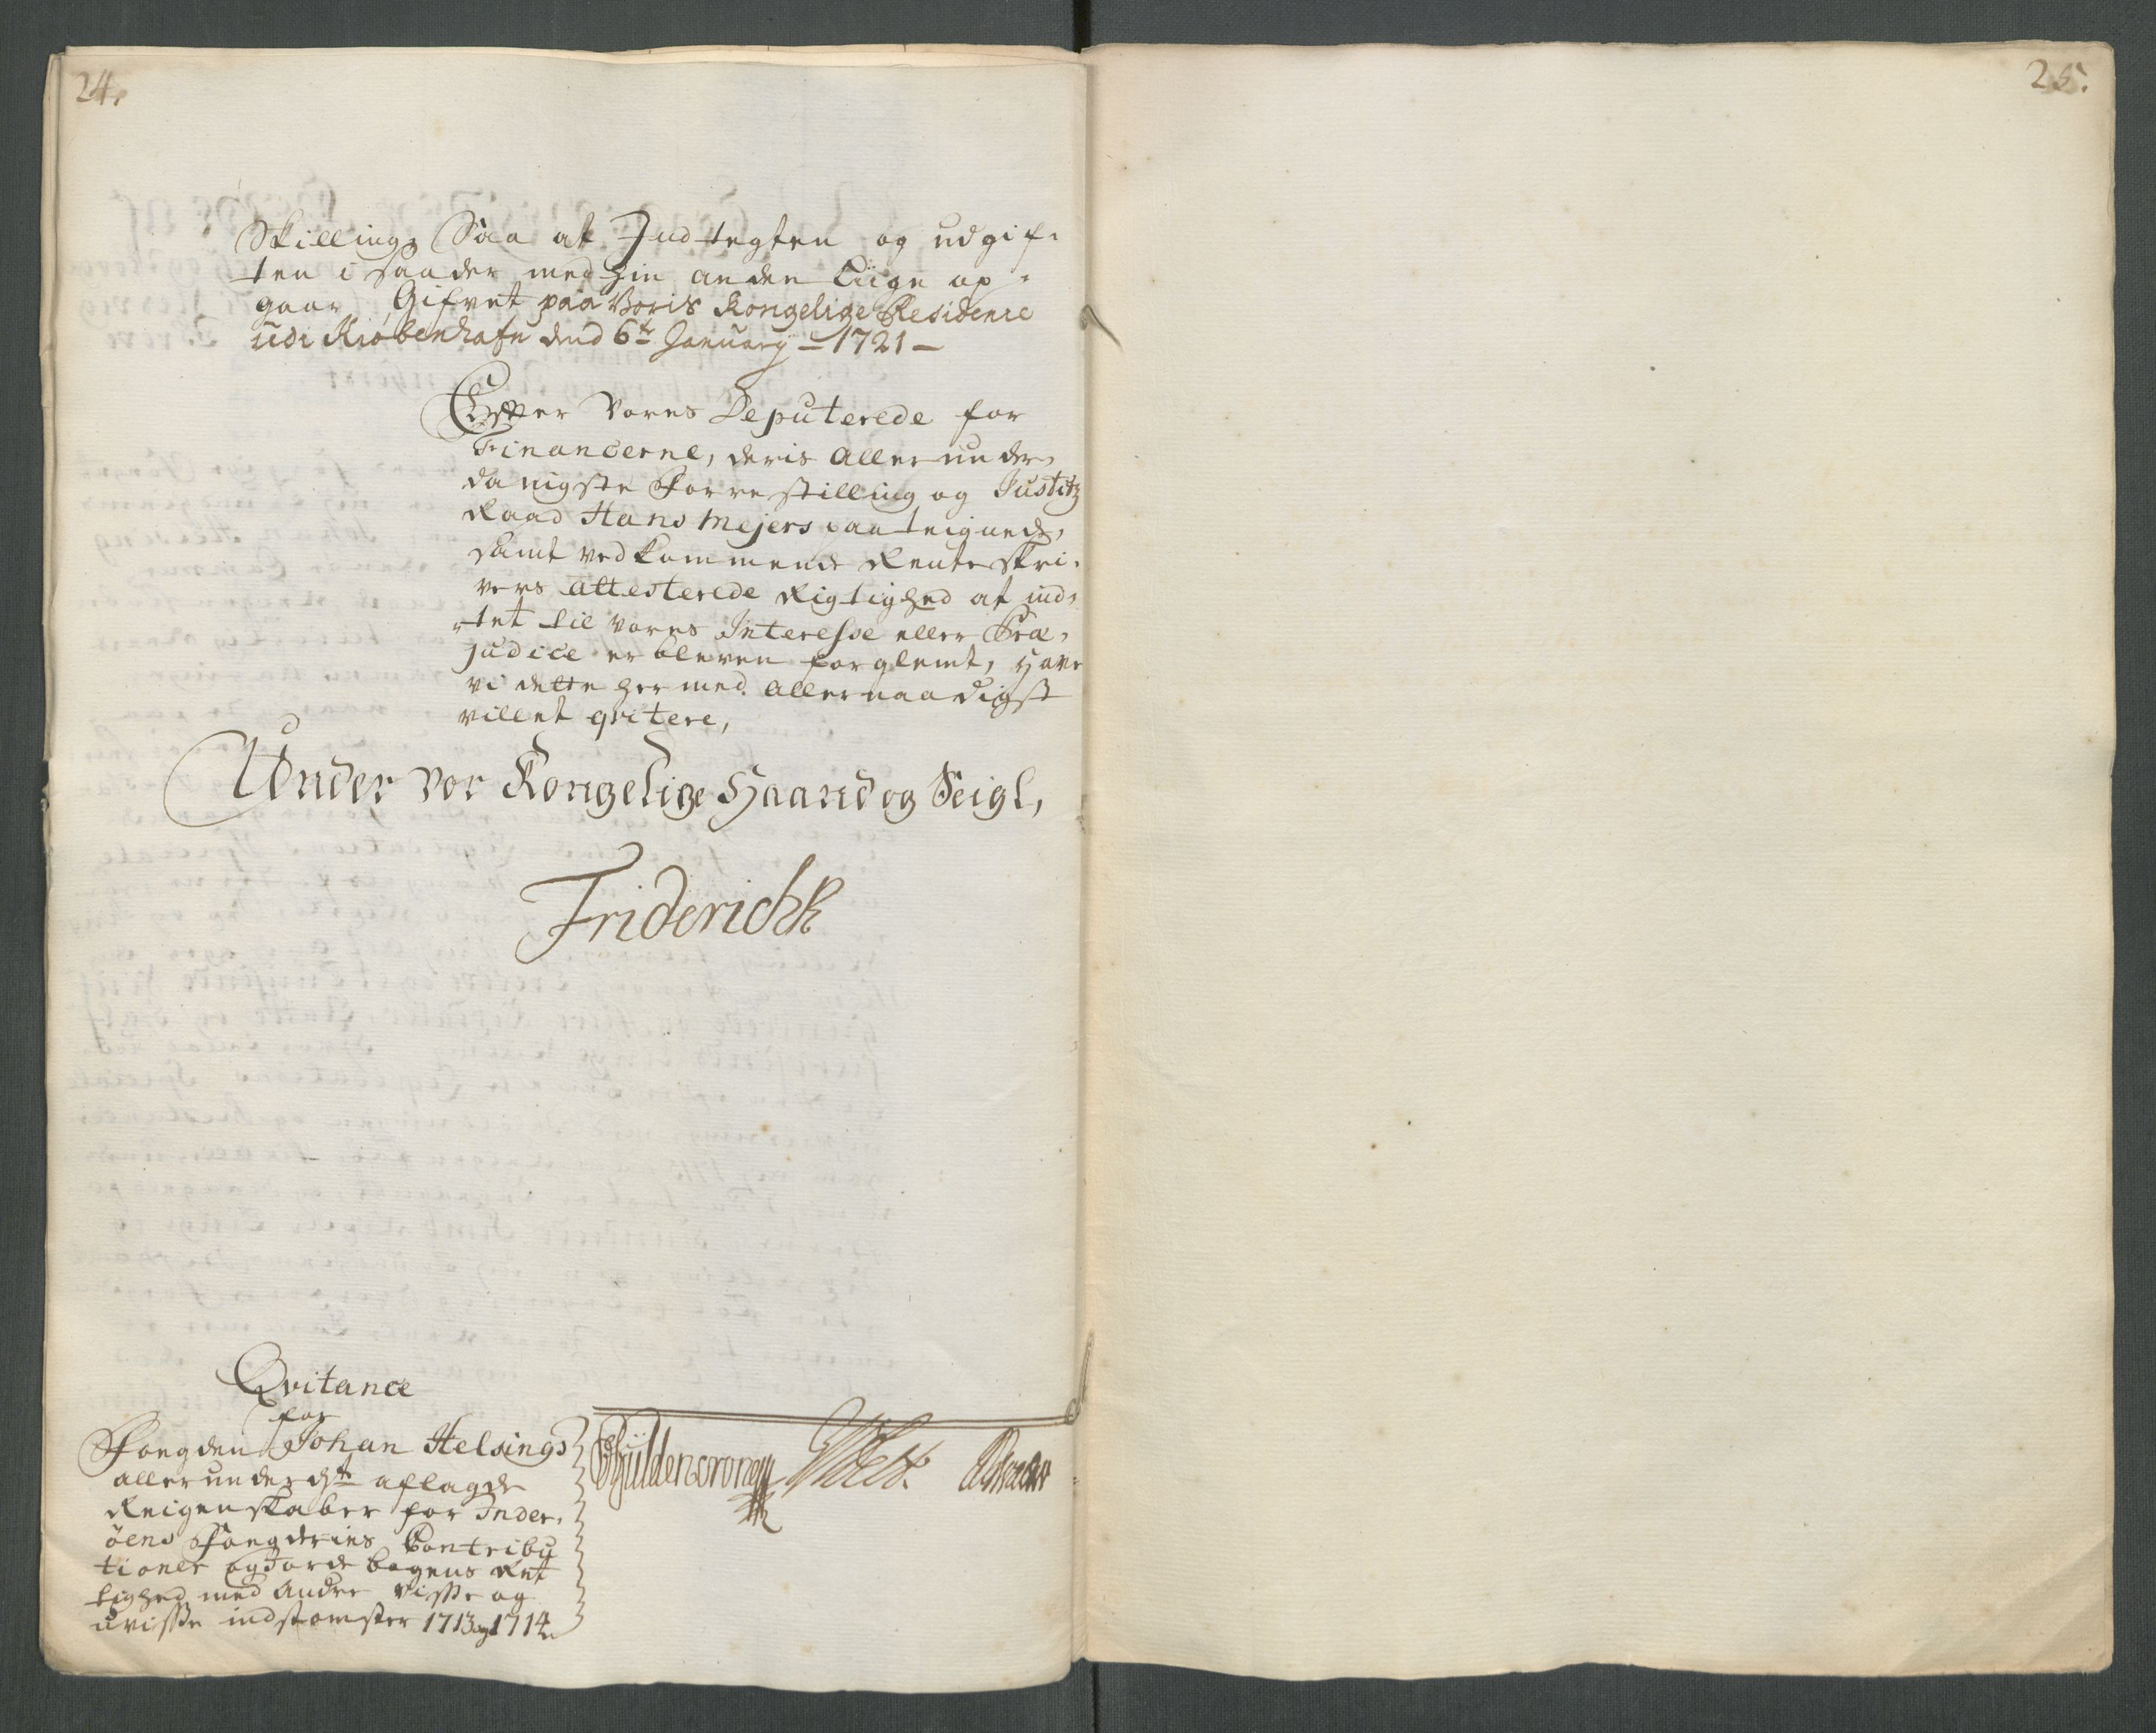 24.
25.
Skilling, Saa at Indtegten og udgif-
ten i saa der med hin anden Liige op-
gaar, Gifvet paa Voris Kongelige Residence
udi Kiøbenhafn dend 6te January - 1721 -
Efter Vores Deputerede for
Financerne, deris Aller under-
danigste Forrestilling og Justitz
Raad Hans Mejers paateignede,
samt vedkommende Renteskri-
vers attesterede Rigtighed at ind-
tet til vores Interesse eller Præ-
judice er bleven forglemt, Have
vi dette her med Allernaadigst
villet qvitere,
Under Vor Kongelige Haand og Seigl,
Friderich R
Qvitance
for
Foegden Johan Helsings
allerunderdst aflagde
Reigenskaber for Inder-
öens Foegderies Contribu
tioner og Jordebogens Ret
tighed med Andre visse og
uvisse indkomster 1713 og 1714
Güldencrone